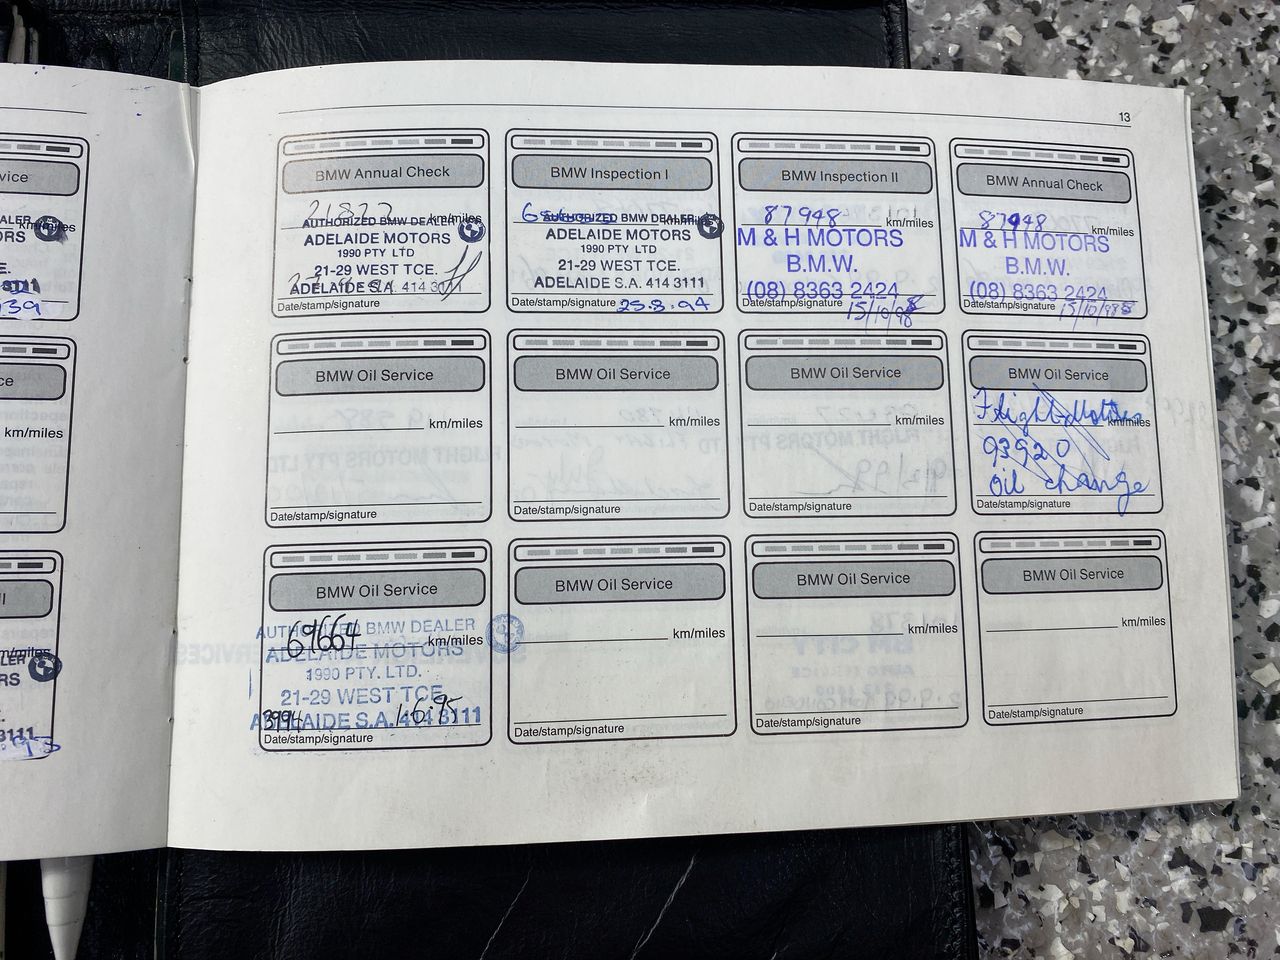 13
vice
BMW Annual Check
BMW Inspection I
BMW Inspection II
BMW Annual Check
21822
km/miles
AUTHORIZED BMW DEALER
ADELAIDE MOTORS
1990 PTY LTD
21-29 WEST TCE.
ADELAIDE S.A. 414 3111
Date/stamp/signature
AUTHORIZED BMW DEALER
ADELAIDE MOTORS
1990 PTY LTD
21-29 WEST TCE.
ADELAIDE S.A. 414 3111
Date/stamp/signature
25.8.94
87948 km/miles
M & H MOTORS
B.M.W.
(08) 8363 2424
Date/stamp/signature
15/10/98
87948
km/miles
M & H MOTORS
B.M.W.
(08) 8363 2424
Date/stamp/signature
15/10/98
ALER
km/miles
ORS
E.
3111
ce
km/miles
BMW Oil Service
km/miles
Date/stamp/signature
BMW Oil Service
km/miles
Date/stamp/signature
BMW Oil Service
km/miles
Date/stamp/signature
BMW Oil Service
Flight Motors
km/miles
93920
oil change
Date/stamp/signature
km/miles
LER
RS
3111
BMW Oil Service
69664
km/miles
AUTHORIZED BMW DEALER
ADELAIDE MOTORS
1990 PTY. LTD.
21-29 WEST TCE.
ADELAIDE S.A. 414 3111
1.6.95
Date/stamp/signature
BMW Oil Service
km/miles
Date/stamp/signature
BMW Oil Service
km/miles
Date/stamp/signature
BMW Oil Service
km/miles
Date/stamp/signature